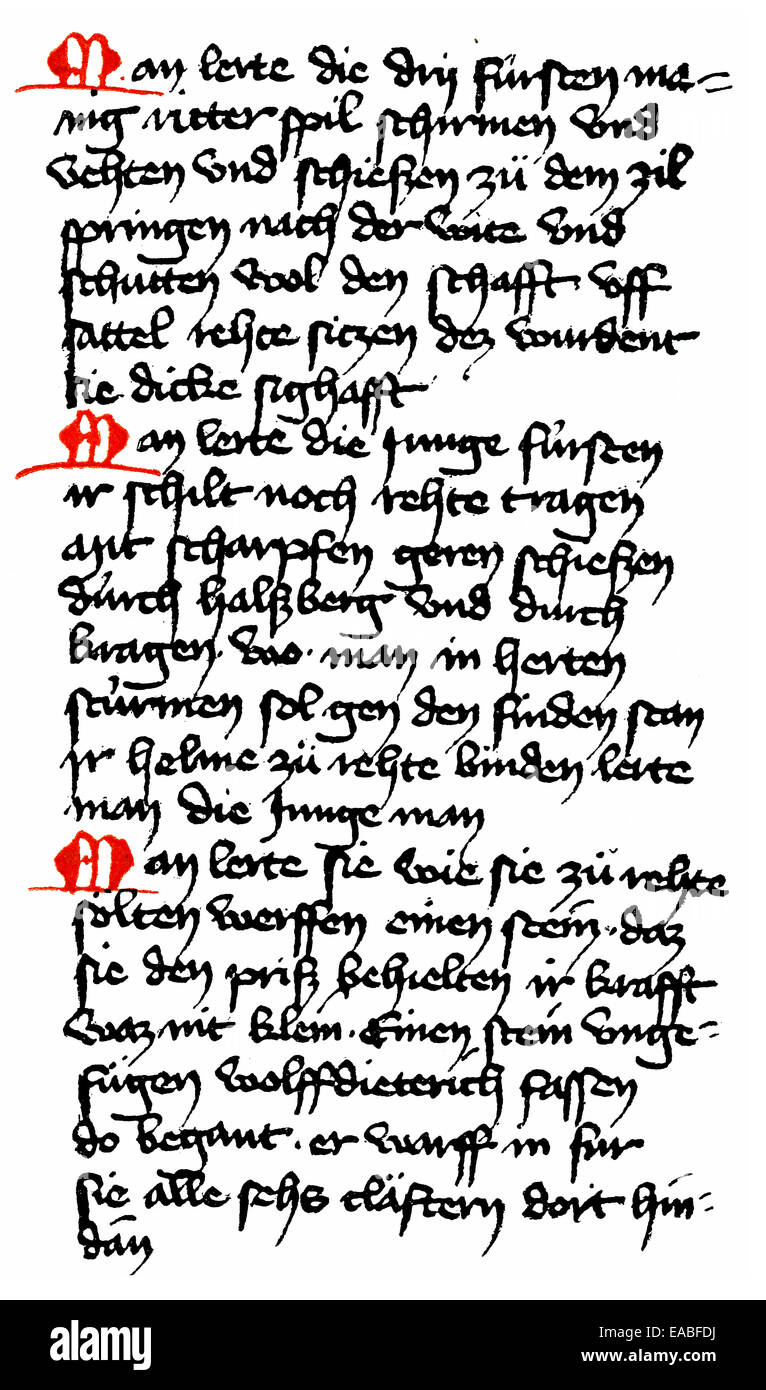 Man lerte die drij fürsten ma=
nig ritter spil schirmen vnd
vehten vnd schieszen zü dem zil
springen nach der wite vnd
schutten wol den schafft. vff
sattel rehte sitzen dez wurdent
sie dicke sighafft
Man lerte die Junge fürsten
ir schilt noch rehte tragen
Mit scharpfen geren schieszen
dürch halszberg vnd durch
kragen. wo. man in herten
stürmen sol gen den finden stan
ir helme zü rehte binden lerte
man die Junge man
Man lerte sie wie sie zü rehte
solten werffen einen stein. daz
sie den prisz behielten ir krafft
waz nit klein. Einen stein vnge=
fügen wolffdieterich fassen
do begant. er warff in fur
sie alle sehs cläftern dort hin=
dan
alamy
Image ID: EABFDJ
www.alamy.com